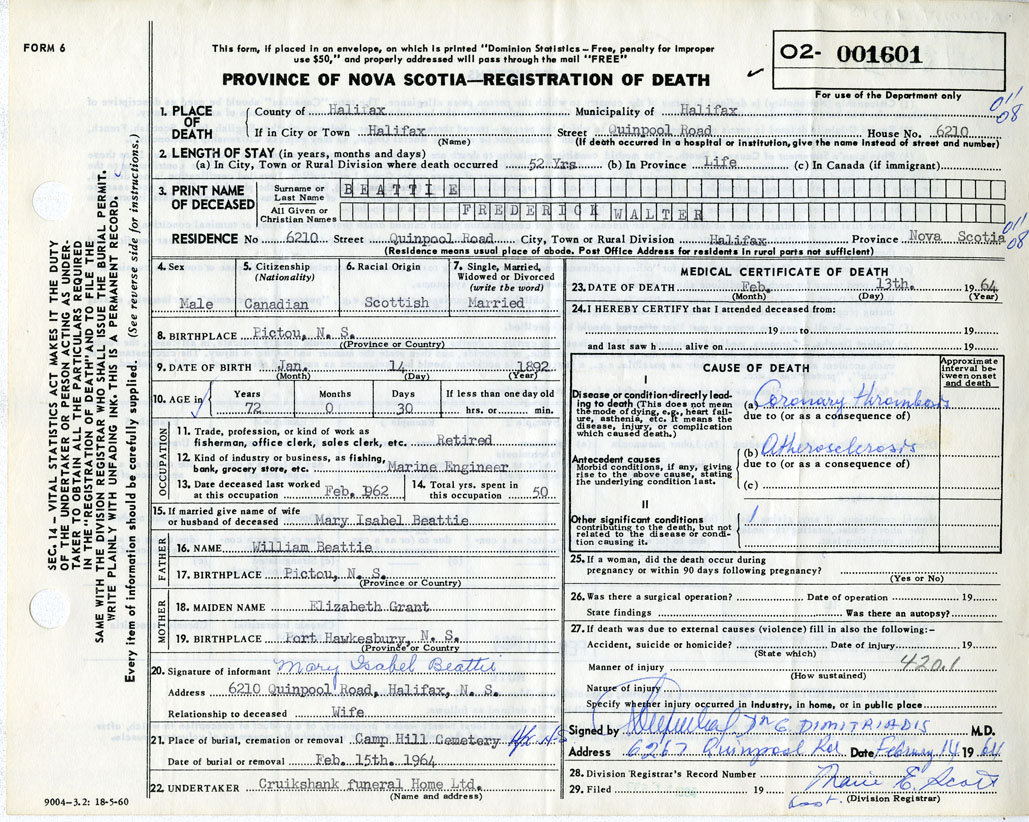 FORM 6
This form, if placed in an envelope, on which is printed "Dominion Statistics – Free, penalty for improper
use $50," and properly addressed will pass through the mail "FREE"
PROVINCE OF NOVA SCOTIA—REGISTRATION OF DEATH
02- 001601
For use of the Department only
011
08
SEC. 14 – VITAL STATISTICS ACT MAKES IT THE DUTY
OF THE UNDERTAKER OR PERSON ACTING AS UNDER-
TAKER TO OBTAIN ALL THE PARTICULARS REQUIRED
IN THE "REGISTRATION OF DEATH" AND TO FILE THE
SAME WITH THE DIVISION REGISTRAR WHO SHALL ISSUE THE BURIAL PERMIT.
WRITE PLAINLY WITH UNFADING INK. THIS IS A PERMANENT RECORD.
Every item of information should be carefully supplied. (See reverse side for instructions.)
1. PLACE OF DEATH County of Halifax Municipality of Halifax
If in City or Town Halifax Street Quinpool Road House No. 6210
(Name) (If death occurred in a hospital or institution, give the name instead of street and number)
2. LENGTH OF STAY (in years, months and days)
(a) In City, Town or Rural Division where death occurred 52 Yrs. (b) In Province Life (c) In Canada (if immigrant)
3. PRINT NAME OF DECEASED Surname or Last Name BEATTIE
All Given or Christian Names FREDERICK WALTER
011
08
RESIDENCE No 6210 Street Quinpool Road City, Town or Rural Division Halifax Province Nova Scotia
(Residence means usual place of abode. Post Office Address for residents in rural parts not sufficient)
4. Sex 5. Citizenship (Nationality) 6. Racial Origin 7. Single, Married, Widowed or Divorced (write the word)
Male Canadian Scottish Married
8. BIRTHPLACE Pictou, N. S.
((Province or Country)
9. DATE OF BIRTH Jan. 14 1892
(Month) (Day) (Year)
10. AGE in Years Months Days If less than one day old
72 0 30 hrs. or min.
OCCUPATION
11. Trade, profession, or kind of work as
fisherman, office clerk, sales clerk, etc. Retired
12. Kind of industry or business, as fishing,
bank, grocery store, etc. Marine Engineer
13. Date deceased last worked at this occupation Feb. 1962 14. Total yrs. spent in this occupation 50
15. If married give name of wife
or husband of deceased Mary Isabel Beattie
FATHER
16. NAME William Beattie
17. BIRTHPLACE Pictou, N. S.
(Province or Country)
MOTHER
18. MAIDEN NAME Elizabeth Grant
19. BIRTHPLACE Port Hawkesbury, N. S.
(Province or Country
20. Signature of informant Mary Isabel Beattie
Address 6210 Quinpool Road, Halifax, N. S.
Relationship to deceased Wife
21. Place of burial, cremation or removal Camp Hill Cemetery Hfx N-S
Date of burial or removal Feb. 15th. 1964
22. UNDERTAKER Cruikshank funeral Home Ltd.
(Name and address)
9004–3.2: 18-5-60
MEDICAL CERTIFICATE OF DEATH
23. DATE OF DEATH Feb. 13th. 1964
(Month) (Day) (Year)
24. I HEREBY CERTIFY that I attended deceased from:
19 to 19
and last saw h alive on 19
CAUSE OF DEATH
Approximate interval between onset and death
I
Disease or condition directly lead-
ing to death (This does not mean
the mode of dying, e.g., heart fail-
ure, asthenia, etc. It means the
disease, injury, or complication
which caused death.)
(a) Coronary Thrombosis
due to (or as a consequence of)
Antecedent causes
Morbid conditions, if any, giving
rise to the above cause, stating
the underlying condition last.
(b) Atherosclerosis
due to (or as a consequence of)
(c)
II
Other significant conditions
contributing to the death, but not
related to the disease or condi-
tion causing it.
1
25. If a woman, did the death occur during
pregnancy or within 90 days following pregnancy?
(Yes or No)
26. Was there a surgical operation? Date of operation 19
State findings Was there an autopsy?
27. If death was due to external causes (violence) fill in also the following:–
Accident, suicide or homicide? Date of injury 19
(State which)
Manner of injury 420.1
(How sustained)
Nature of injury
Specify whether injury occurred in Industry, in home, or in public place
Signed by G DIMITRIADIS M.D.
Address 6267 Quinpool Rd Date February 14 1964
28. Division Registrar's Record Number
29. Filed 19 Marie E. Scott
(Division Registrar)